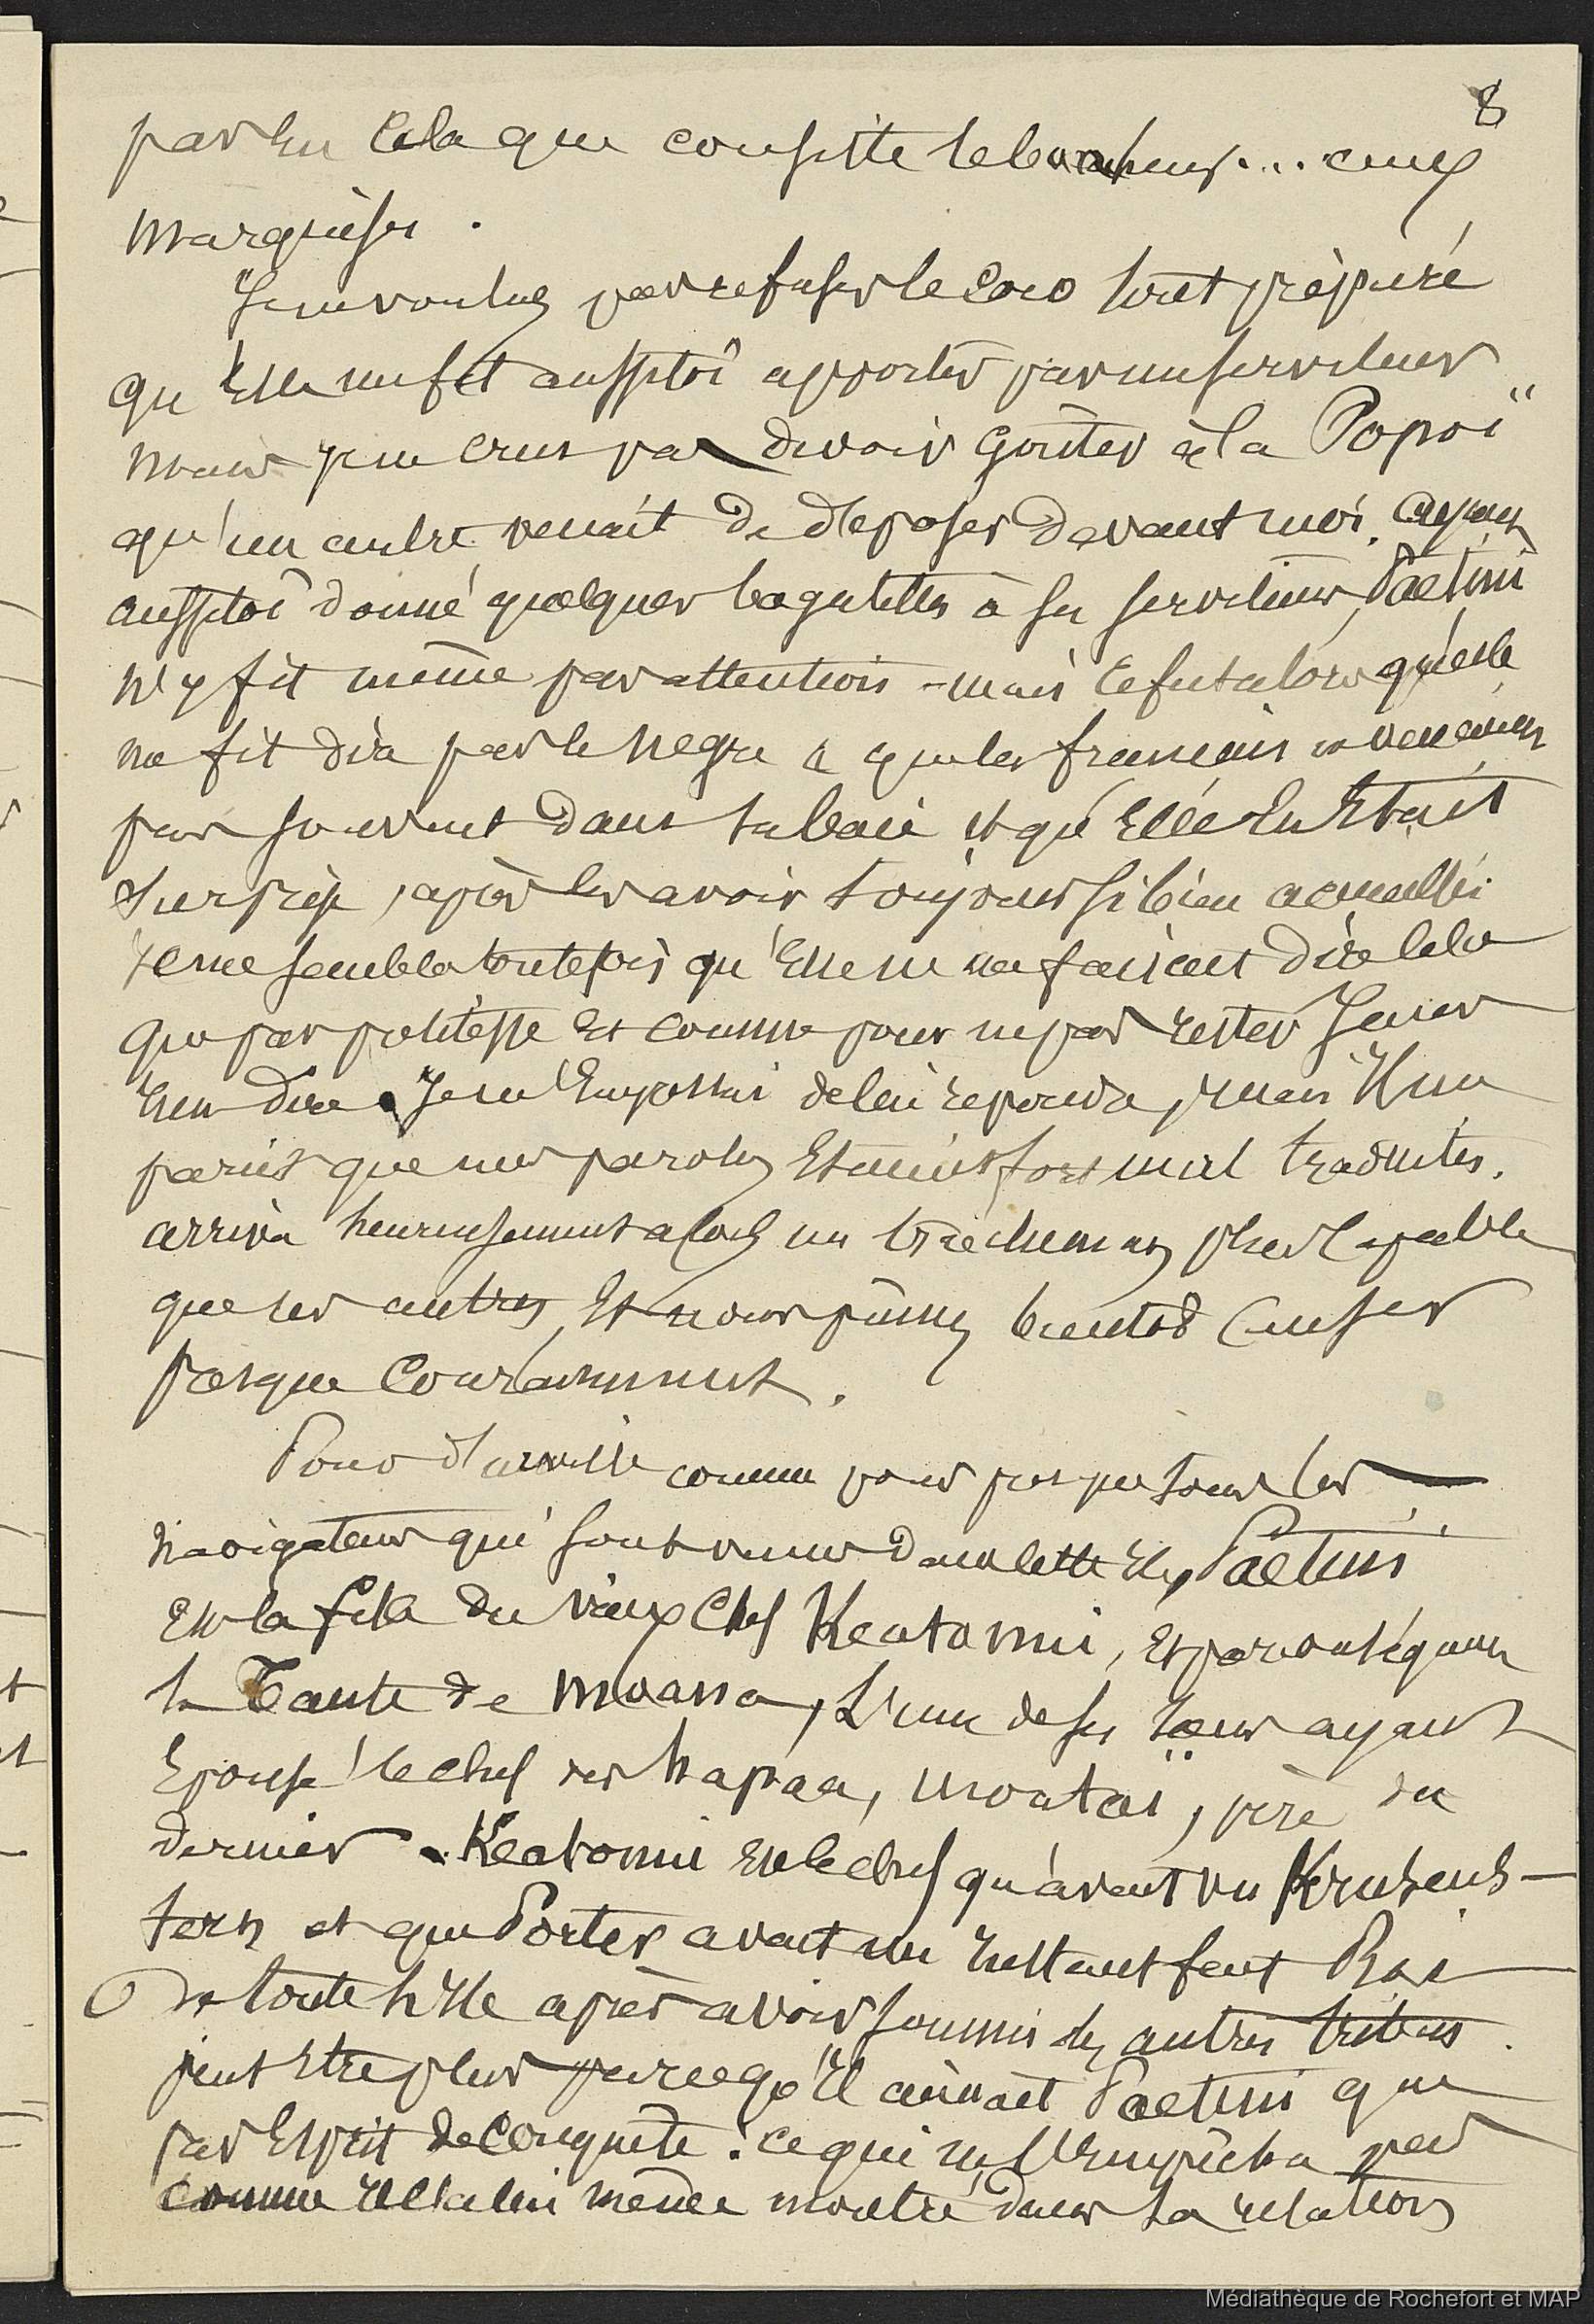 8
pas en cela que consiste le bonheur... aux
marquises.
Je ne voulus pas refuser le coco tout préparé
qu'Elle me fit aussitôt apporter par un serviteur
mais je ne crus pas devoir goûter à la Popoï
qu'un autre venait de déposer devant moi. ayant
aussitôt donné quelques bagatelles à ses serviteurs, Paetini
n'y fit même pas attention - mais ce fut alors qu'elle
me fit dire par le negre que les français ne venaient
pas souvent dans sa baie et qu'Elle En Etait
surprise, après les avoir toujours si bien accueillis
il me sembla toutefois qu'Elle ne me faisait dire cela
que par politesse Et comme pour ne pas rester sans
rien dire. Je m'Empressai de lui repondre, mais Il me
parut que mes paroles Etaient fort mal traduites.
arriva heureusement alors un truchement plus capable
que les autres, Et nous pûmes bientôt causer
presque couramment.
Pour d'urville comme pour presque tous les
navigateurs qui sont venus dans cette Ile, Paetini
Est la fille du vieux chef Keatonui, Et par conséquent
la Tante de Moana, L'une de ses sœurs ayant
Epousé le chef des hapaa, moataï, père du
dernier. Keatonui Est le chef qu'avait vu Krusens-
tern et que Porter avait un instant fait Roi
de toute l'Ile après avoir soumis les autres tribus
peut Etre plus parcequ'Il aimait Paetini que
par Esprit de conquête : ce qui ne l'Empêcha pas
comme Il l'a lui même montré dans sa relation
Médiathèque de Rochefort et MAP